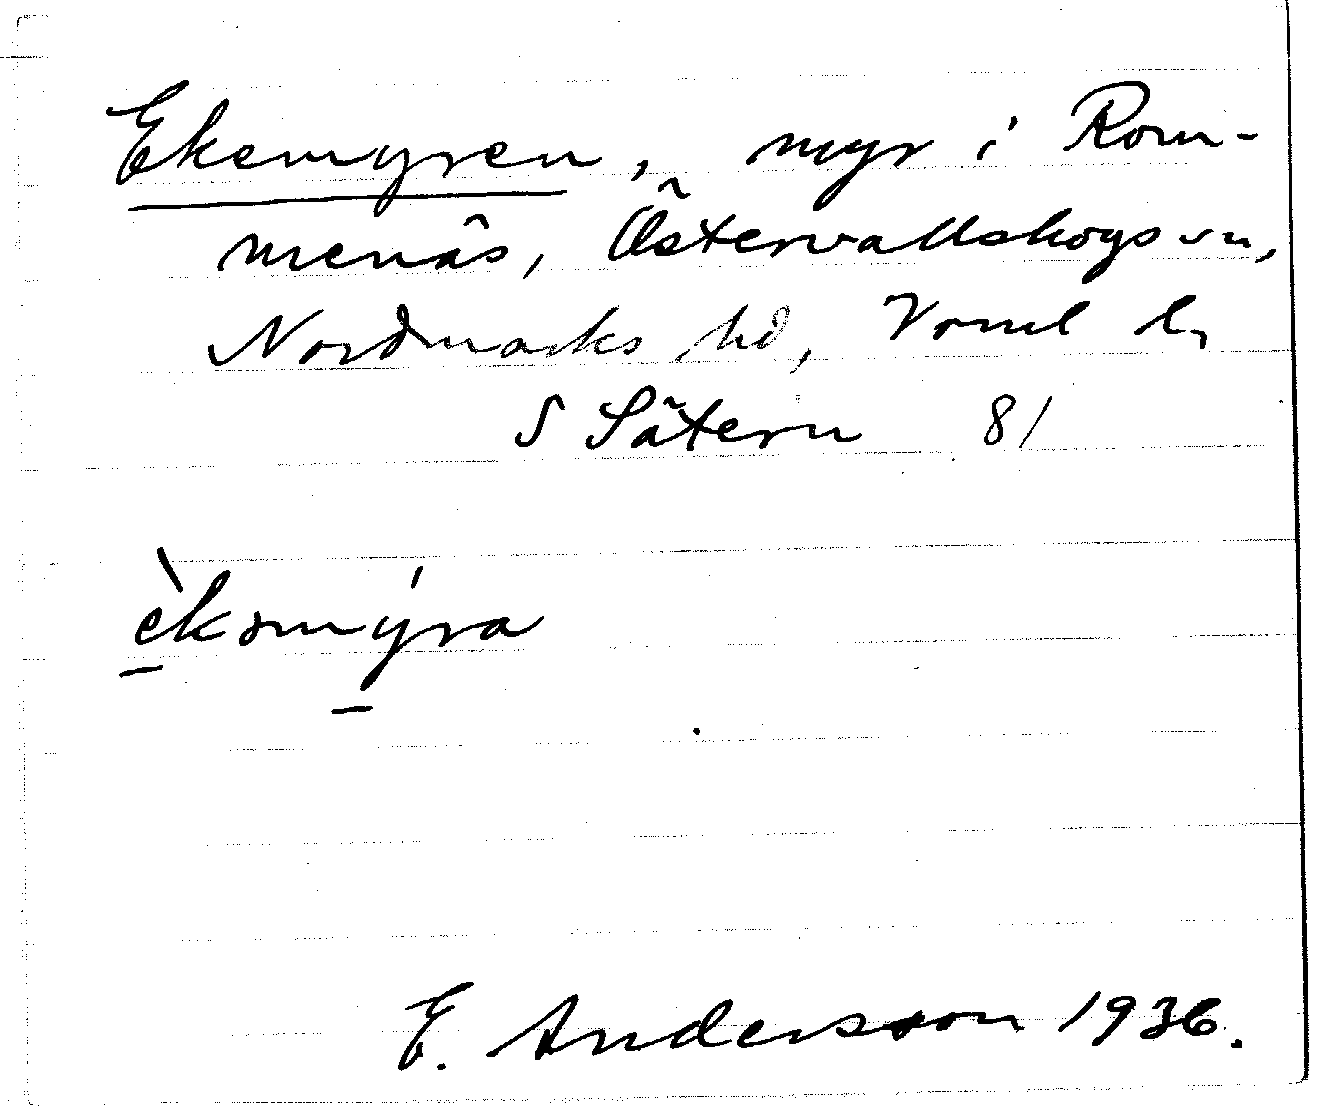 Ekemyren, myr i Rom-
menäs, Östervallskogs sn,
Nordmarks hd, Vrml ln
S Sätern 81
èkəmýra
E. Andersson 1936.